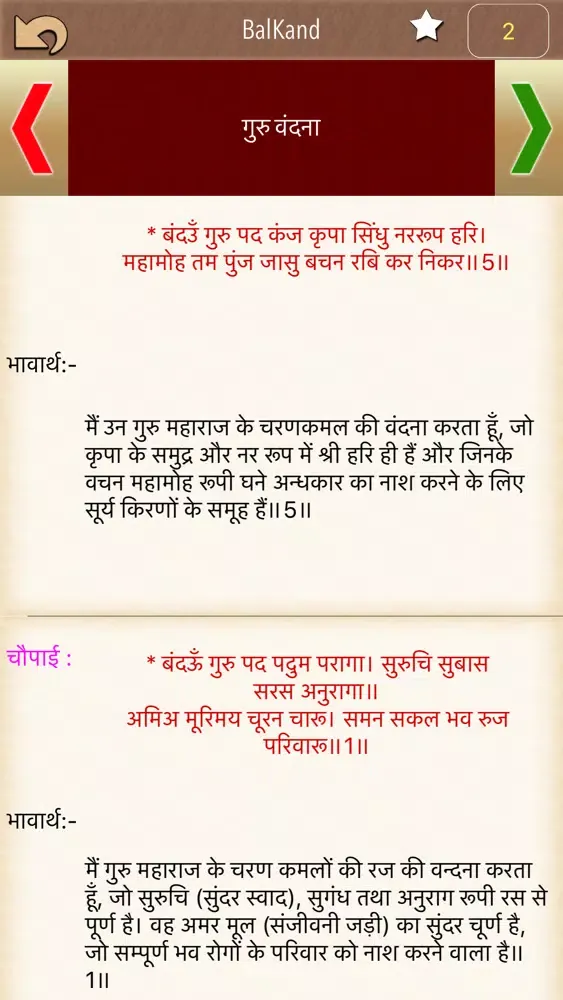 BalKand
2
गुरु वंदना
* बंदउँ गुरु पद कंज कृपा सिंधु नररूप हरि।
महामोह तम पुंज जासु बचन रबि कर निकर॥5॥
भावार्थ:-
मैं उन गुरु महाराज के चरणकमल की वंदना करता हूँ, जो
कृपा के समुद्र और नर रूप में श्री हरि ही हैं और जिनके
वचन महामोह रूपी घने अन्धकार का नाश करने के लिए
सूर्य किरणों के समूह हैं॥5॥
चौपाई :
* बंदऊँ गुरु पद पदुम परागा। सुरुचि सुबास
सरस अनुरागा॥
अमिअ मूरिमय चूरन चारू। समन सकल भव रुज
परिवारू॥1॥
भावार्थ:-
मैं गुरु महाराज के चरण कमलों की रज की वन्दना करता
हूँ, जो सुरुचि (सुंदर स्वाद), सुगंध तथा अनुराग रूपी रस से
पूर्ण है। वह अमर मूल (संजीवनी जड़ी) का सुंदर चूर्ण है,
जो सम्पूर्ण भव रोगों के परिवार को नाश करने वाला है॥
1॥